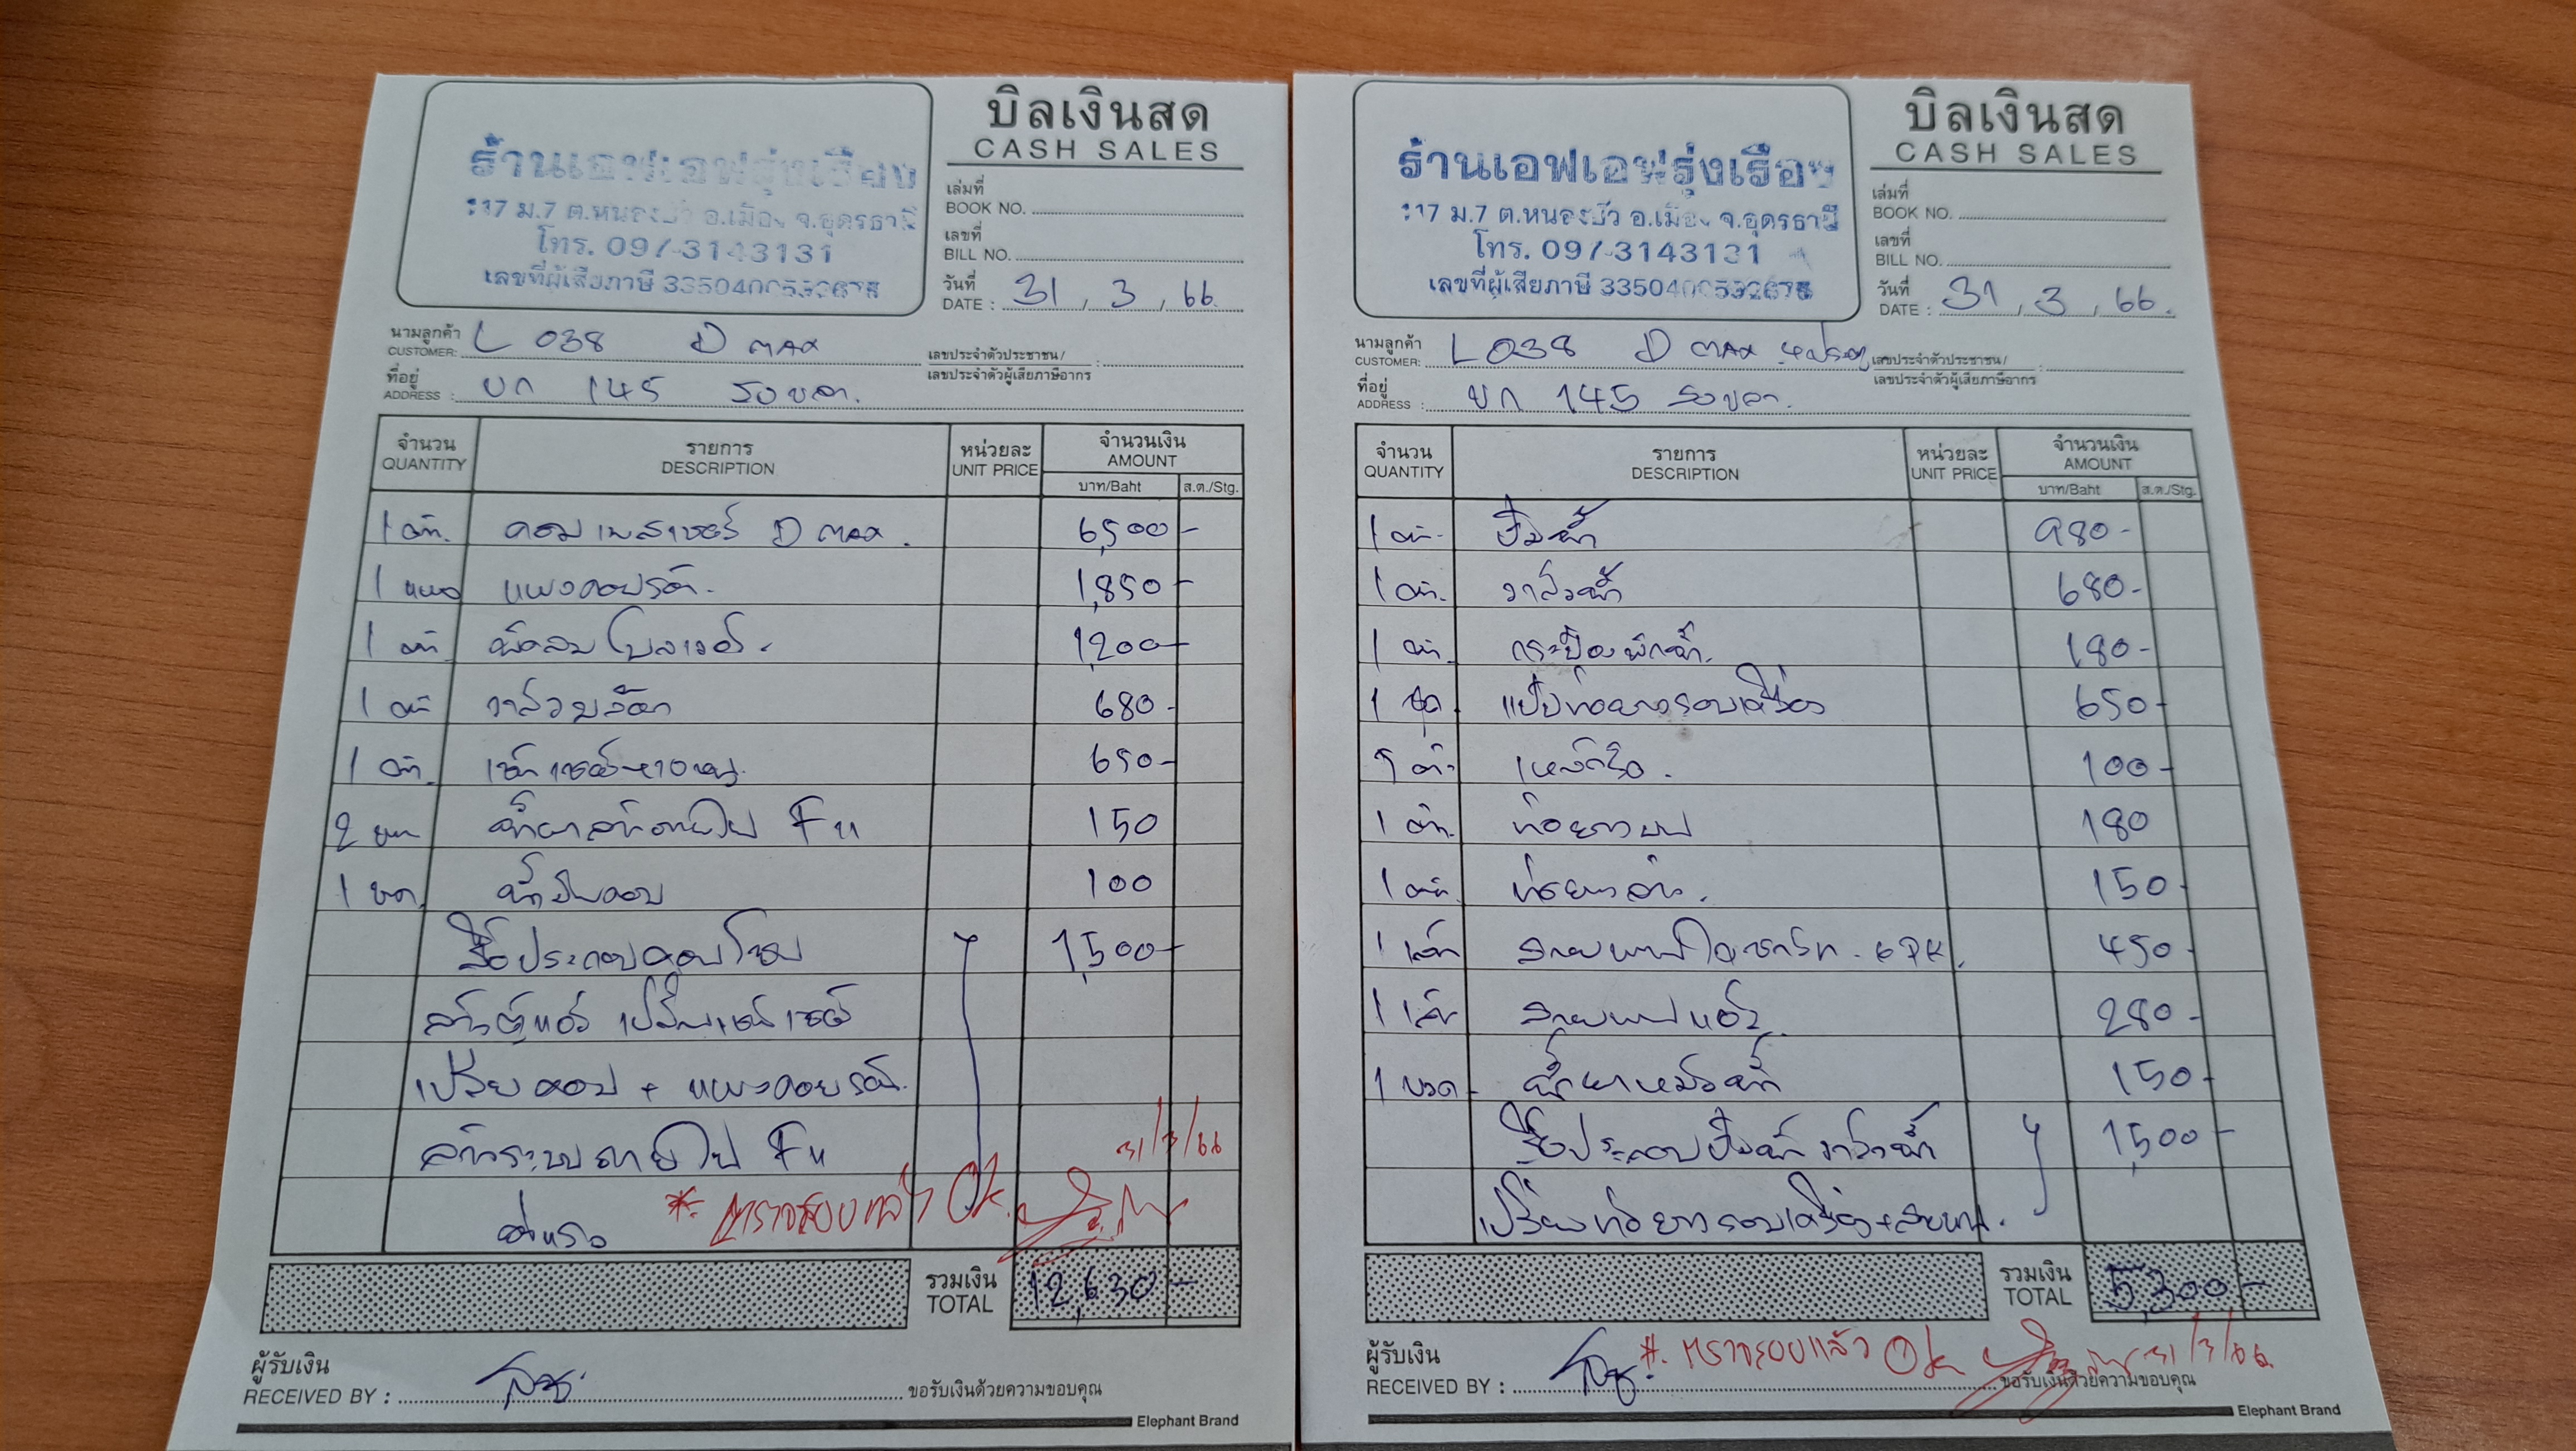 บิลเงินสด
CASH SALES
ร้านเอฟเอฟรุ่งเรือง
117 ม.7 ต.หนองบัว อ.เมือง จ.อุดรธานี
โทร. 097-3143131
เลขที่ผู้เสียภาษี
เล่มที่
BOOK NO.
เลขที่
BILL NO.
วันที่
DATE : 31 , 3 , 66
นามลูกค้า
CUSTOMER: L 038 D MAX
เลขประจำตัวประชาชน/ :
เลขประจำตัวผู้เสียภาษีอากร
ที่อยู่
ADDRESS : บก 145 สงขลา.
จำนวน รายการ หน่วยละ จำนวนเงิน
QUANTITY DESCRIPTION UNIT PRICE AMOUNT
บาท/Baht ส.ต./Stg.
1 ตัว. คอมเพลสเซอร์ D MAX . 6,500-
1 แผง แผงคอยร้อน. 1,850-
1 ตัว พัดลมโบลเวอร์. 1,200-
1 ตัว วาล์วบล็อก 680-
1 ตัว. 650-
2 น้ำยาล้างภายใน F11 150
1 ขวด. น้ำมันคอม 100
รื้อประกอบคอนโซน 1,500-
ล้างตู้แอร์ เปลี่ยนเซ็นเซอร์
เปลี่ยนคอม + แผงคอยร้อน.
ล้างระบบภายใน F11
ค่าแรง
* ตรวจสอบแล้ว Ok. 31/3/66
รวมเงิน
TOTAL 12,630-
ผู้รับเงิน
RECEIVED BY : ขอรับเงินด้วยความขอบคุณ
Elephant Brand
บิลเงินสด
CASH SALES
ร้านเอฟเอฟรุ่งเรือง
117 ม.7 ต.หนองบัว อ.เมือง จ.อุดรธานี
โทร. 097-3143131
เลขที่ผู้เสียภาษี
เล่มที่
BOOK NO.
เลขที่
BILL NO.
วันที่
DATE : 31 , 3 , 66.
นามลูกค้า
CUSTOMER: L 038 D MAX 4ประตู
เลขประจำตัวประชาชน/ :
เลขประจำตัวผู้เสียภาษีอากร
ที่อยู่
ADDRESS : บก 145 สงขลา.
จำนวน รายการ หน่วยละ จำนวนเงิน
QUANTITY DESCRIPTION UNIT PRICE AMOUNT
บาท/Baht ส.ต./Stg.
1 ตัว ปั๊มน้ำ 980-
1 ตัว. วาล์วน้ำ 680-
1 ตัว. กระป๋องพักน้ำ. 180-
1 ชุด. แป๊ปท่อยางรอบเครื่อง 650-
5 ตัว เหล็กรัด . 100-
1 ตัว. ท่อยางบน 180
1 ตัว. ท่อยางล่าง. 150-
1 เส้น สายพานไดชาร์ท . 6PK. 450-
1 เส้น สายพานแอร์. 280-
1 ขวด- น้ำยาหม้อน้ำ 150-
รื้อประกอบปั๊มน้ำ วาล์วน้ำ 1,500-
เปลี่ยนท่อยางรอบเครื่อง+สายพาน.
รวมเงิน
TOTAL 5,300.-
ผู้รับเงิน
RECEIVED BY : ขอรับเงินด้วยความขอบคุณ
*. ตรวจสอบแล้ว Ok 31/3/66.
Elephant Brand